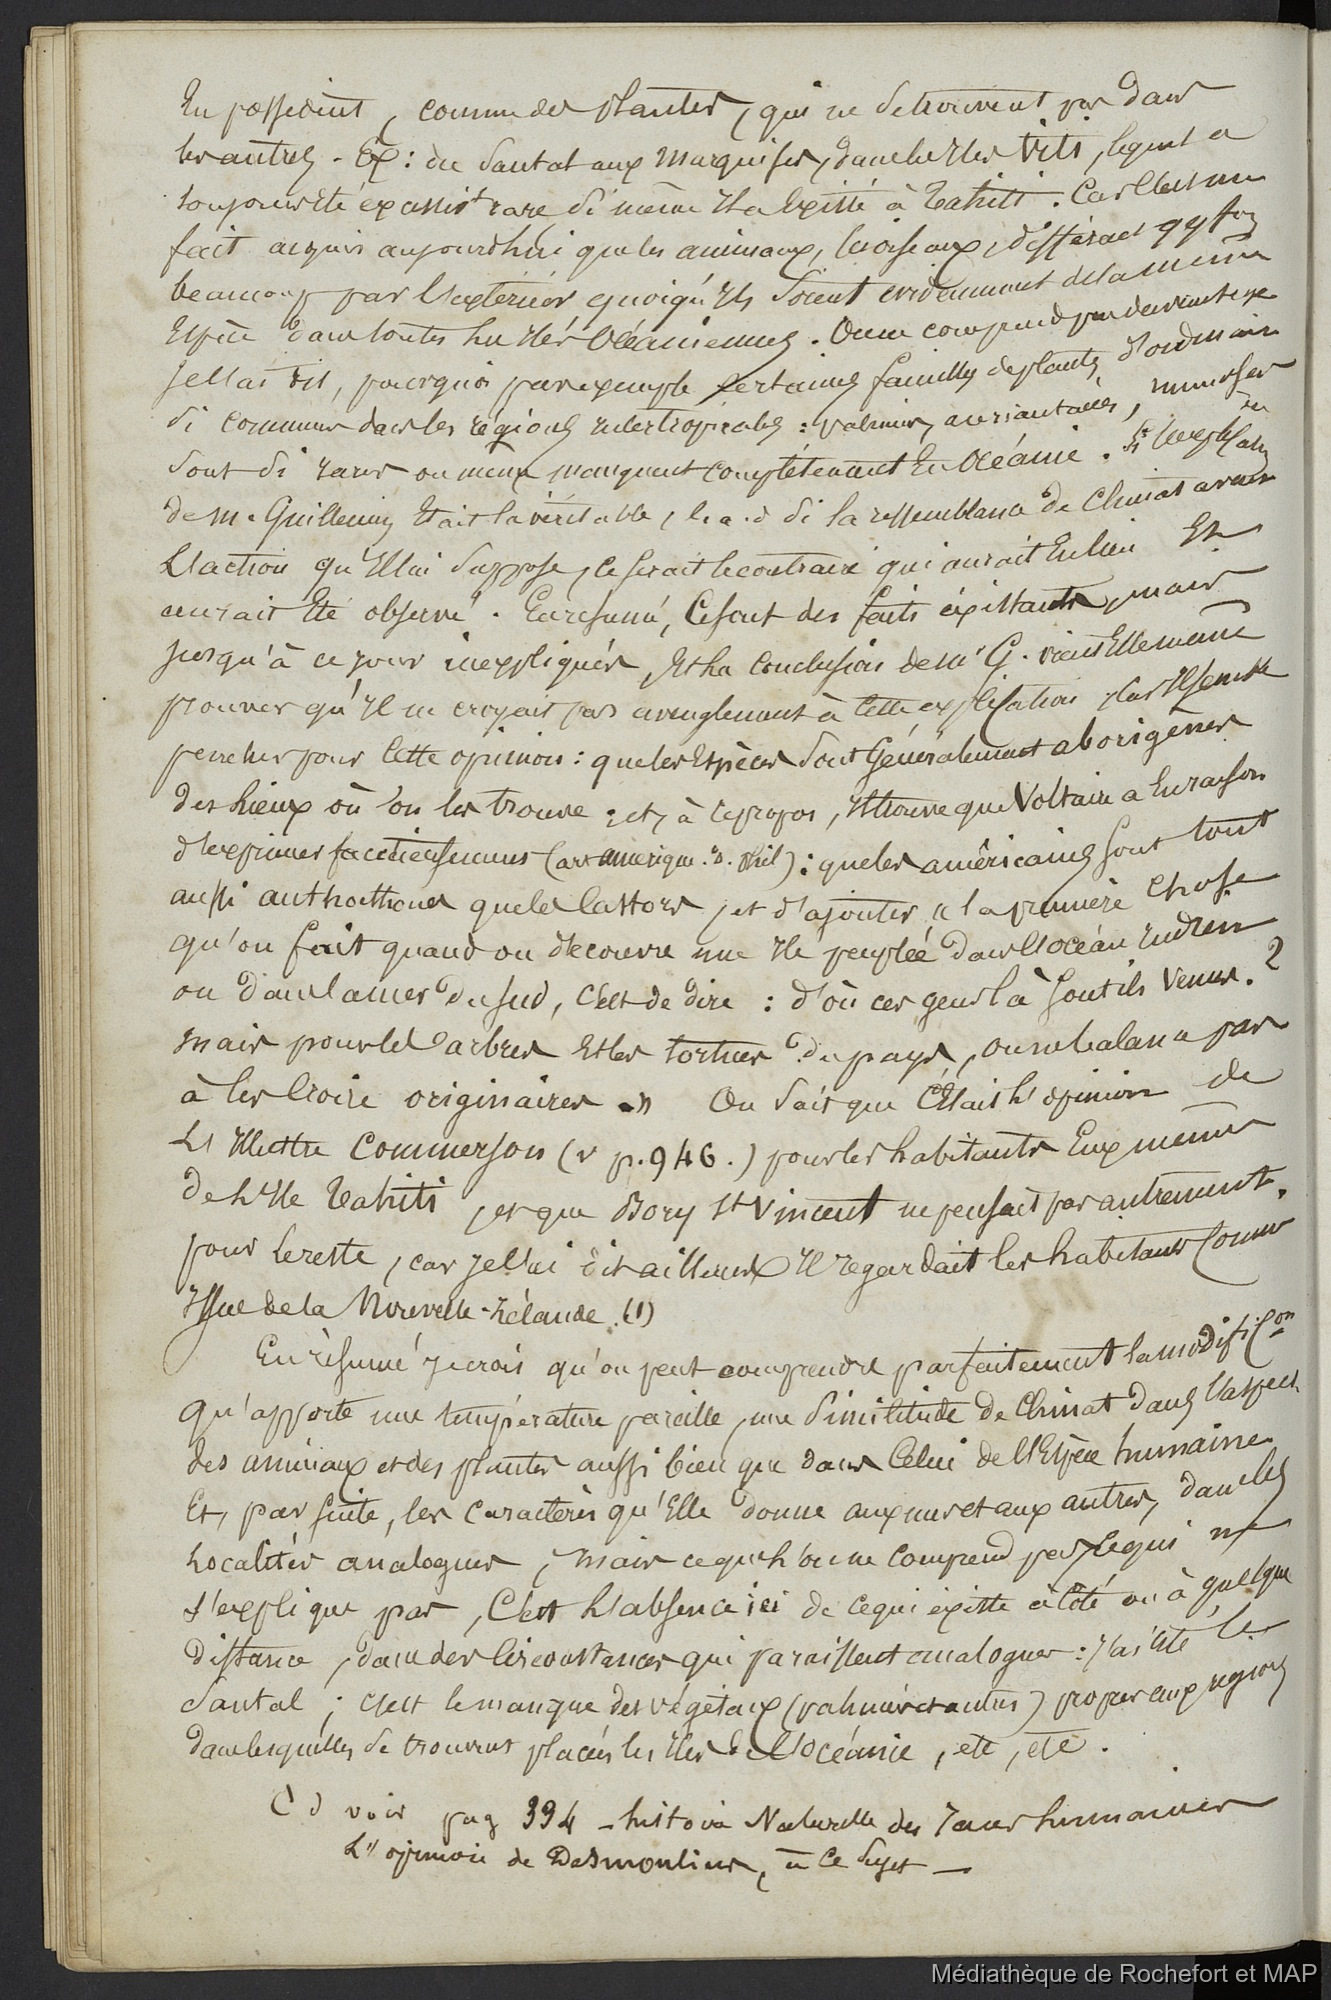 En possédent, comme des plantes, qui ne se trouvent pas dans
les autres. Ex: du Santal aux Marquises, dans les Iles Viti, lequel a
toujours été
rare si même Il a Existé à Tahiti. Car C'est un
fait acquis aujourdhui que les animaux, les oiseaux, diffèrent qq fois
beaucoup par l'extérieur quoiqu'Ils soient evidemment de la même
Espèce dans toutes les Iles Océaniennes. On ne comprend pas
je l'ai dit, pourquoi par exemple certaines familles de plantes, d'ordinaire
si communes dans les régions intertropicales : palmiers, aurantacées,
sont si rares ou même manquent complétement En Océanie. Si l'explicaon
de M. Guillemin Etait la véritable, c. a. d si la ressemblance de climat avait
L'action qu'Il lui suppose, ce serait le contraire qui aurait Eu lieu Et
aurait Eté observé. En résumé, Ce sont des faits éxistants, mais
jusqu'à ce jour inexpliqués, Et la Conclusion de Mr G. vient Elle même
prouver qu'Il ne croyait pas aveuglement à Cette explication, Car Il semble
pencher pour Cette opinion : que les Espèces sont Généralement aborigènes
des Lieux où l'on les trouve ; et, à ce propos, Il trouve que Voltaire a Eu raison
d'exprimer facetieusement (art amerique. d. phil) : que les américains sont tout
aussi authocthones que les Castors, et d'ajouter « la première chose
qu'on fait quand on découvre une Ile peuplée dans l'océan Indien
ou dans la mer du sud, C'est de dire : d'où ces gens là sont ils venus. ?
Mais pour les arbres Et les tortues du pays, on ne balance pas
à les Croire originaires. » On sait que C'Etait l'opinion de
L'Illustre Commerson (v p. 946.) pour les habitants Eux mêmes
de L'Ile Tahiti, et que Bory St Vincent ne pensait pas autrement.
pour le reste, car je l'ai dit ailleurs Il regardait les habitants Comme
Issus de la Nouvelle-Zélande. (1)
En résumé je crois qu'on peut comprendre parfaitement la modificon
qu'apporte une température pareille, une similitude de Climat dans l'aspect
des animaux et des plantes aussi bien que dans Celui de l'Espèce humaine
Et, par suite, les caractères qu'Elle donne aux uns et aux autres, dans les
Localités analogues, mais ce que L'on ne comprend pas, ce qui ne
s'explique pas, C'est L'absence ici de ce qui éxiste à Côté ou à quelque
distance, dans des Circonstances qui paraissent analogues : j'ai Cité le
Santal ; C'est le manque des végétaux (palmiers et autres) propres aux regions
dans lesquelles se trouvent placées les Iles de l'Océanie, etc, etc.
voir pag 394 - histoire Naturelle des races humaines
L'opinion de Desmoulins, à ce sujet -
Médiathèque de Rochefort et MAP